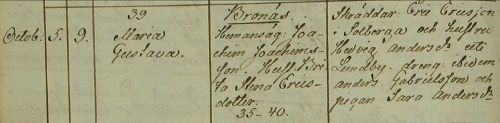 39
Octob. 5. 9. Maria
Gustava.
Bronäs.
Hemansäg: Joa-
chim Joachims-
son. Hust. Bri-
ta Stina Erics-
dotter.
35-40.
Skräddar: Eric Ericsson
i Solberga och hustru
Hedvig Andersd. uti
Lundby. dreng: ibidem
anders Gabrielsson och
pigan Sara Andersd.